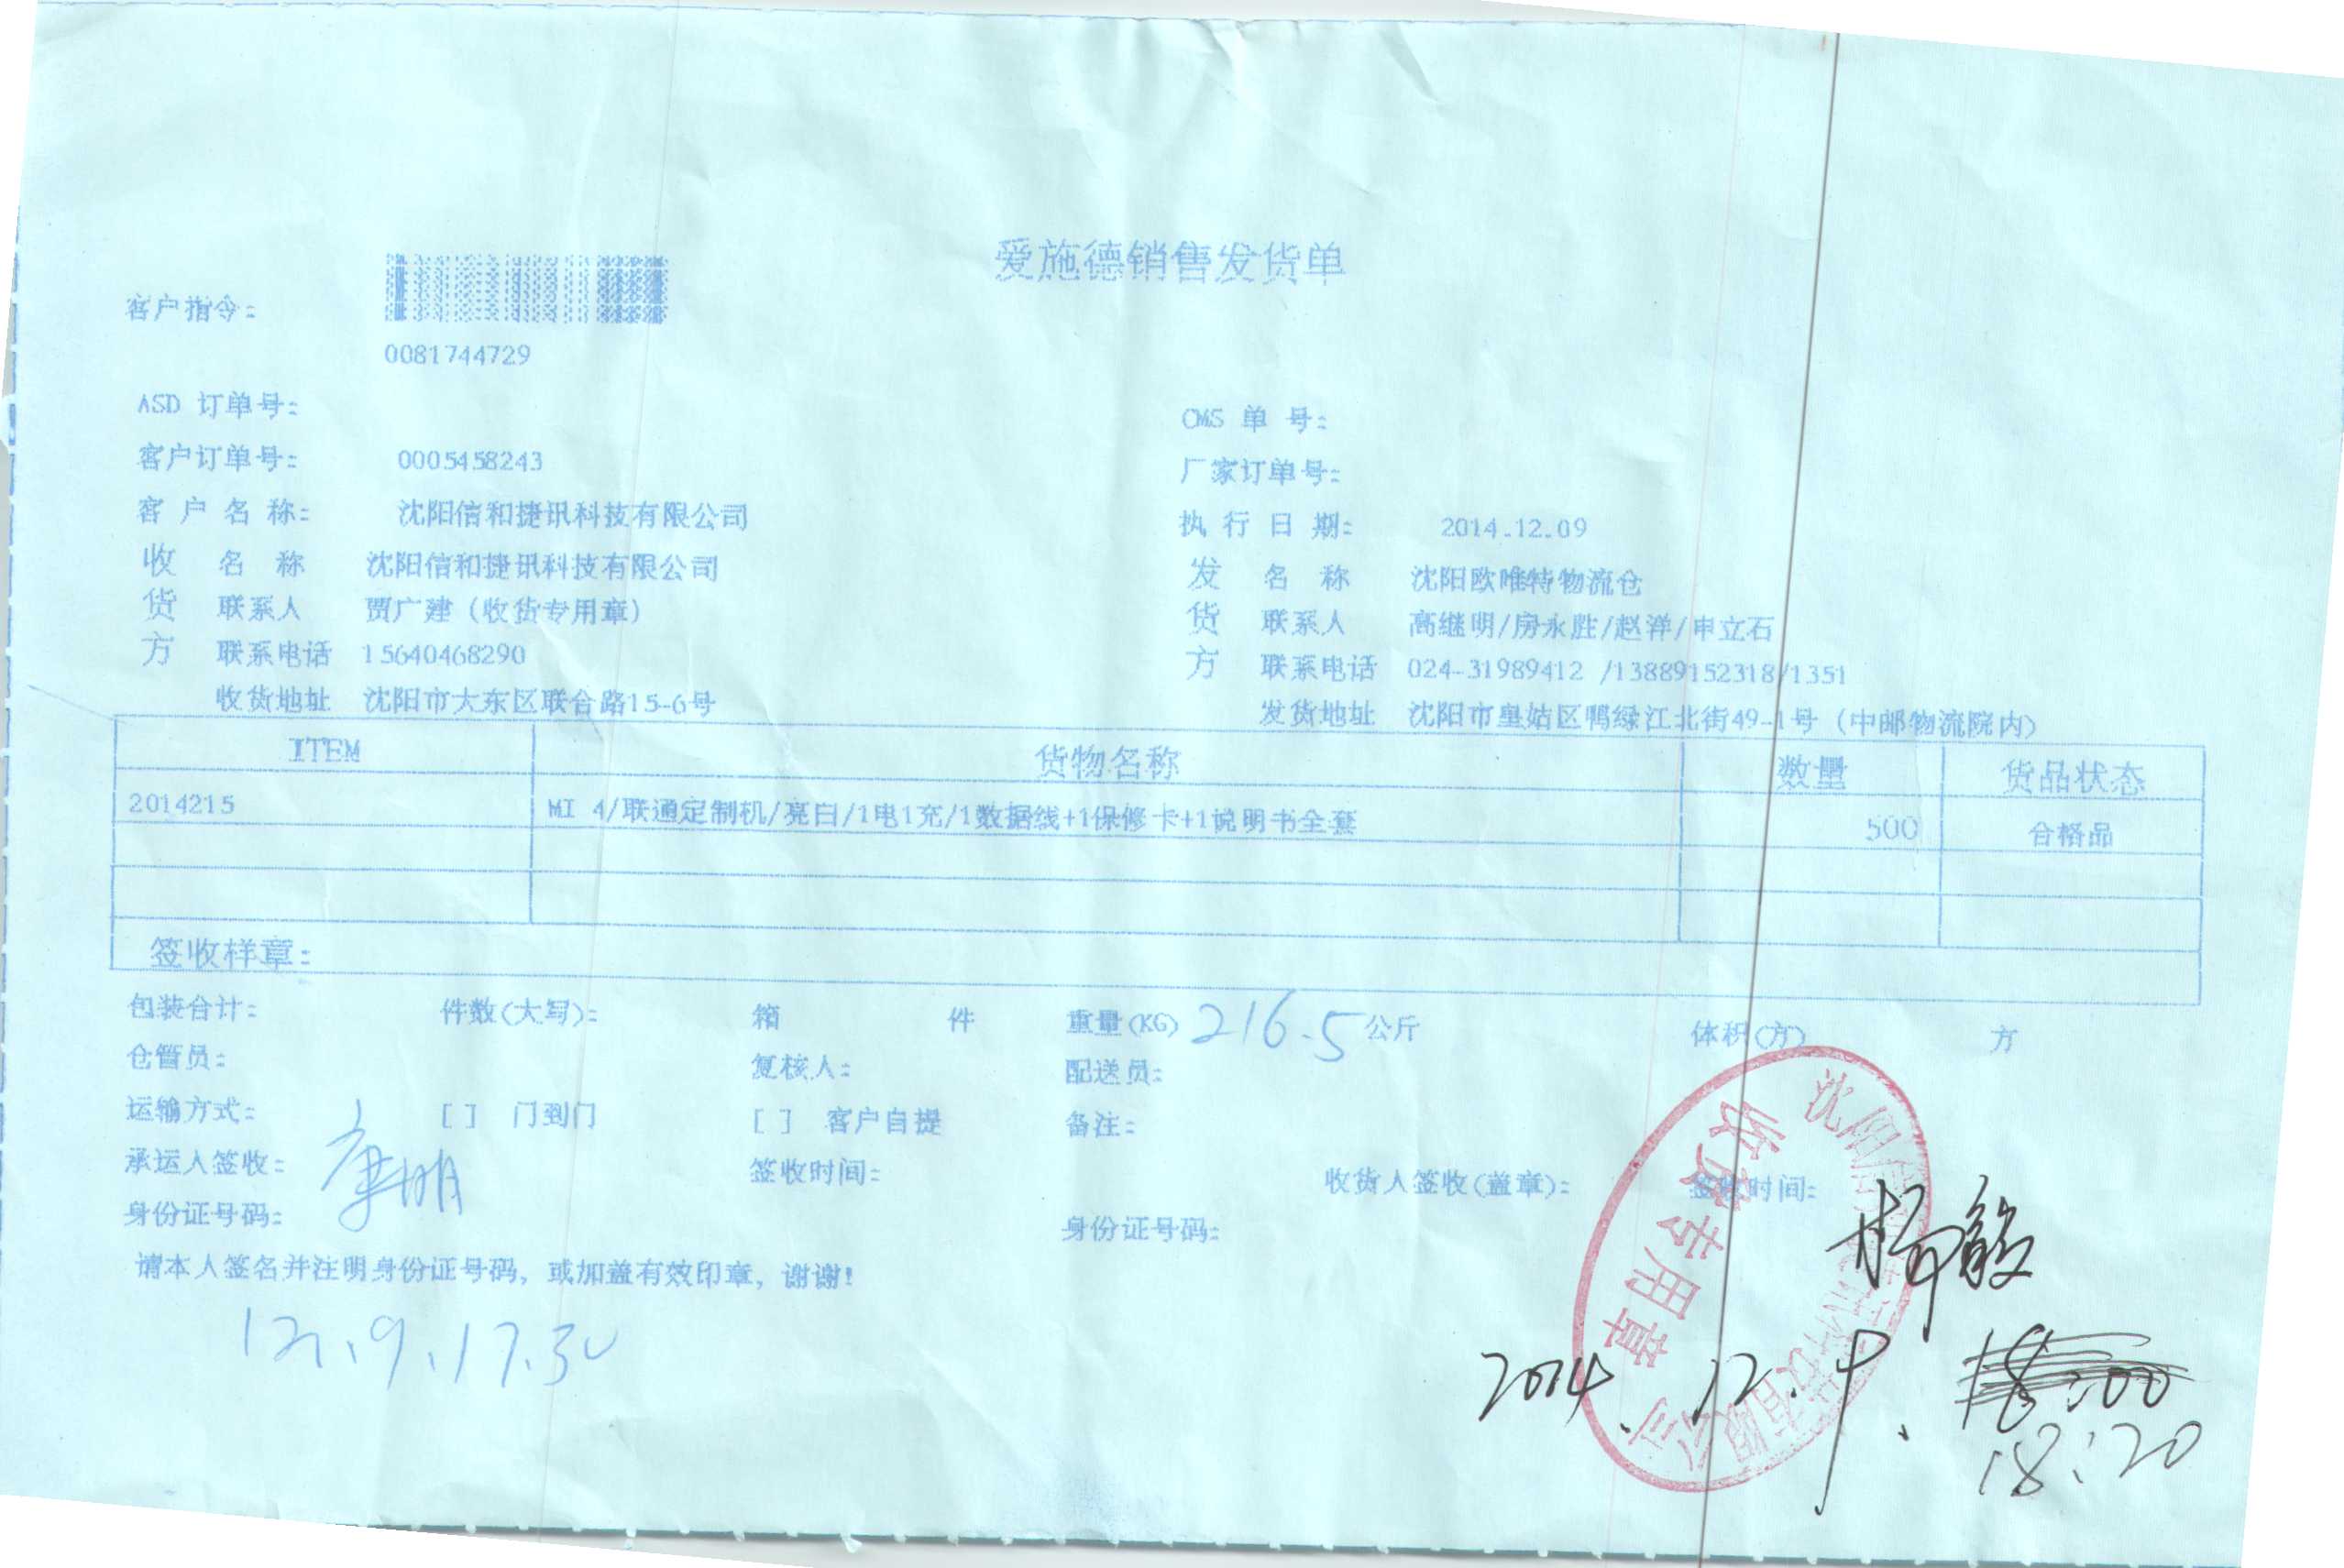 爱施德销售发货单
客户指令:
0081744729
ASD 订单号: CMS 单 号:
客户订单号: 0005458243 厂家订单号:
客 户 名 称: 沈阳信和捷讯科技有限公司 执 行 日 期: 2014.12.09
收 名 称 沈阳信和捷讯科技有限公司 发 名 称 沈阳欧唯特物流仓
货 联系人 贾广建(收货专用章) 货 联系人 高继明/房永胜/赵洋/申立石
方 联系电话 15640468290 方 联系电话 024-31989412 /13889152318/1351
收货地址 沈阳市大东区联合路15-6号 发货地址 沈阳市皇姑区鸭绿江北街49-1号(中邮物流院内)
ITEM 货物名称 数量 货品状态
2014215 MI 4/联通定制机/亮白/1电1充/1数据线+1保修卡+1说明书全套 500 合格品
签收样章:
包装合计: 件数(大写): 箱 件 重量(KG) 216.5 公斤 体积(方) 方
仓管员: 复核人: 配送员:
运输方式: [ ] 门到门 [ ] 客户自提 备注:
承运人签收: 康明 签收时间: 收货人签收(盖章): 签收时间:
身份证号码: 身份证号码:
请本人签名并注明身份证号码，或加盖有效印章，谢谢!
12.9.17.30
收货专用章
2014.12.9. 18:00
18:20